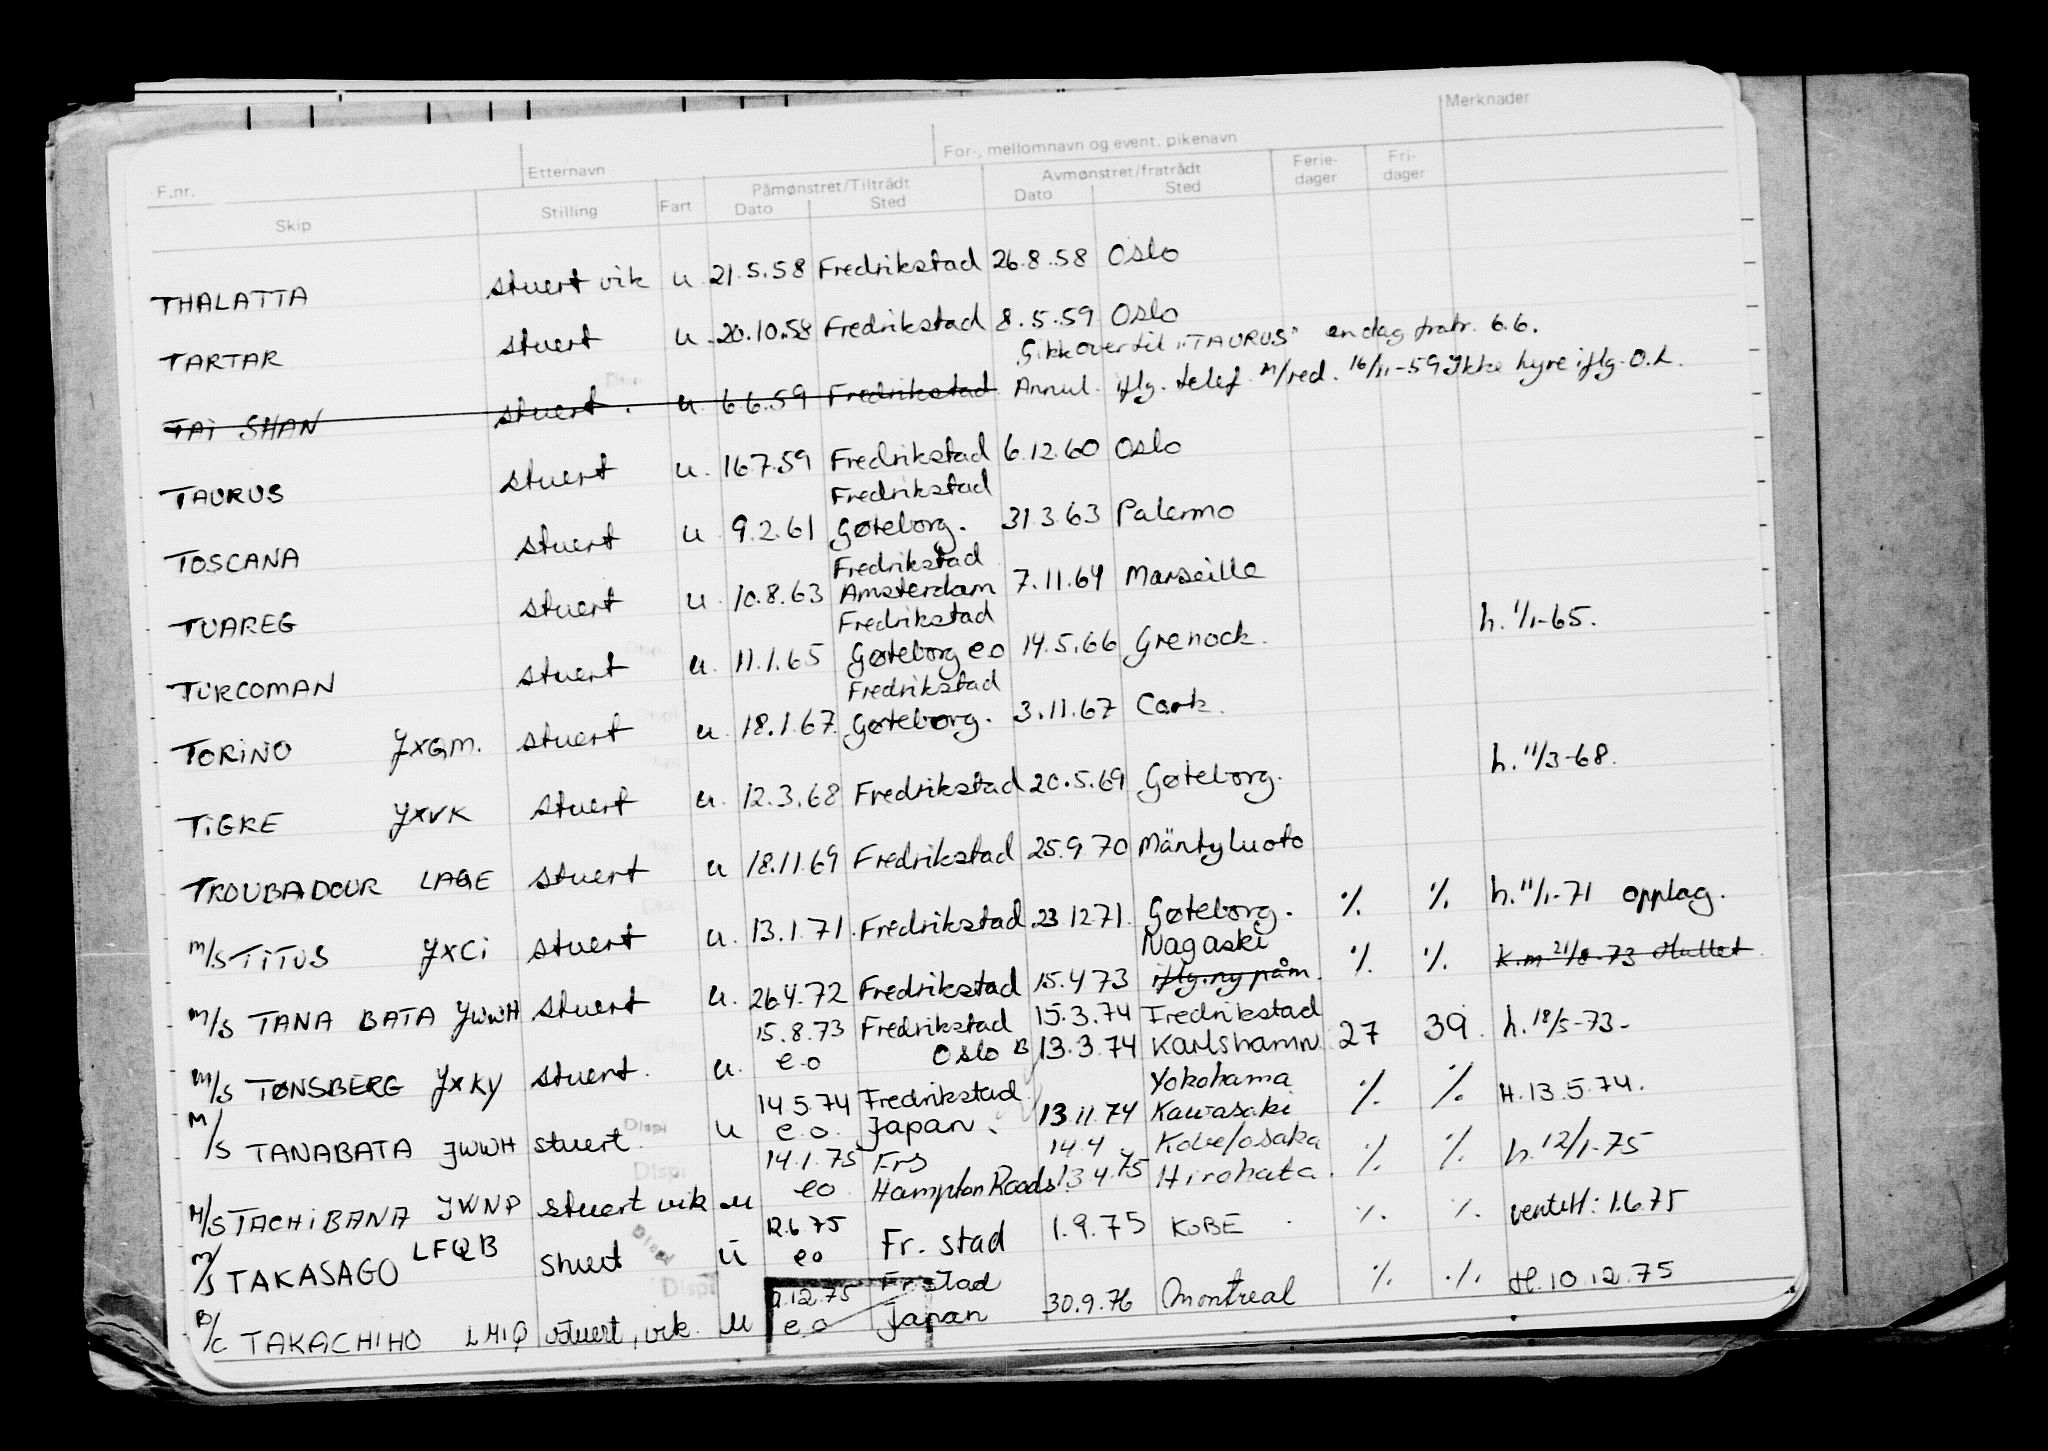 Merknader
F.nr. Etternavn For-, mellomnavn og event. pikenavn
Skip Stilling Fart Påmønstret/Tiltrådt Dato Sted Avmønstret/fratrådt Dato Sted Ferie-dager Fri-dager
THALATTA stuert vik u 21.5.58 Fredrikstad 26.8.58 Oslo
TARTAR stuert u 20.10.58 Fredrikstad 8.5.59 Oslo
Gikk over til "TAURUS" en dag fratr. 6.6.
TAI SHAN stuert. u 6.6.59 Fredrikstad Annul. iflg. telef. M/red. 16/11-59 Ikke hyre iflg. O.L.
TAURUS stuert u. 16.7.59 Fredrikstad 6.12.60 Oslo
Fredrikstad
TOSCANA stuert u 9.2.61 Gøteborg. 31.3.63 Palermo
Fredrikstad
TUAREG stuert u 10.8.63 Amsterdam 7.11.64 Marseille
Fredrikstad
TURCOMAN stuert u. 11.1.65 Gøteborg e.o 14.5.66 Grenock. h. 1/1-65.
Fredrikstad
TORINO JXQM. stuert u. 18.1.67 Gøteborg. 3.11.67 Cork.
TIGRE JXVK stuert u. 12.3.68 Fredrikstad 20.5.69 Gøteborg. h. 11/3-68.
TROUBADOUR LAGE stuert u 18.11.69 Fredrikstad 25.9.70 Mäntyluoto
M/S TITUS JXCI stuert u. 13.1.71 Fredrikstad 23.12.71. Gøteborg. % % h. 11/1-71 opplag.
Nagaski
M/S TANA BATA JWWH stuert u. 26.4.72 Fredrikstad 15.4.73 iflg. ny påm. % % k.m 21/8-73
15.8.73 Fredrikstad 15.3.74 Fredrikstad
M/S TØNSBERG JXKY stuert. u. e.o Oslo B 13.3.74 Karlshamn 27 39. h. 18/5-73-
14.5.74 Fredrikstad Yokohama
M/S TANABATA JWWH stuert. u e.o. Japan. 13.11.74 Kawasaki % % H. 13.5.74.
14.1.75 Frs 14.4 Kobe/osaka
M/S TACHIBANA JWNP stuert vik u eo Hampton Roads 13.4.75 Hirohata. % % h. 12/1-75
12.6.75
M/S TAKASAGO LFQB stuert u eo Fr. stad 1.9.75 KOBE % % ventet: 1.6.75
12.75 Fr.stad
B/C TAKACHIHO LHIQ stuert, vik. u e.o Japan 30.9.76 Montreal % % H. 10.12.75